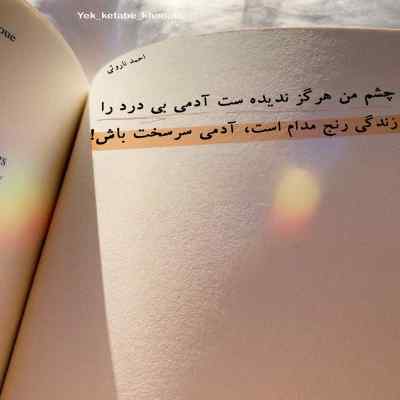 Yek_ketabe_khoob
احمد ناروئی
چشم من هرگز ندیده ست آدمی بی درد را
زندگی رنج مدام است، آدمی سرسخت باش!